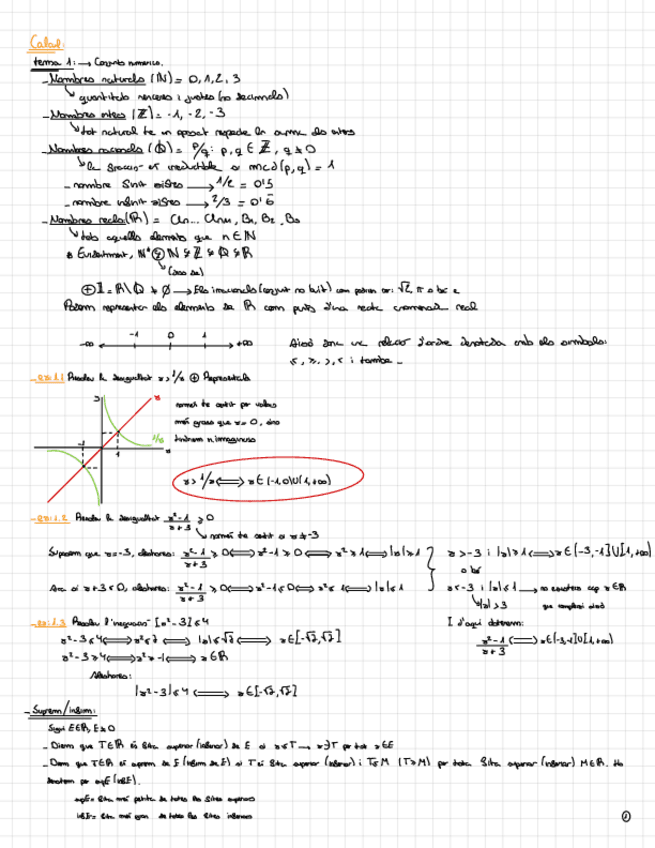 Càlcul:
tema 1: → Conjunts numèrics.
- Nombres naturals (ℕ) = 0, 1, 2, 3
quantitats senceres i justes (no decimals)
- Nombres enters (ℤ) = -1, -2, -3
tot natural té un oposat respecte la suma dels enters
- Nombres racionals (ℚ) = p/q : p, q ∈ ℤ, q ≠ 0
la fracció és irreductible si mcd(p, q) = 1
- nombre finit xifres → 1/2 = 0'5
- nombre infinit xifres → 2/3 = 0'6
- Nombres reals: (ℝ) =
tots aquells elements que n ∈ ℕ
Evidentment, ℕ ⊊ ℤ ⊊ ℚ ⊊ ℝ
⊕ 𝕀 = ℝ \ ℚ ≠ ∅ → Els irracionals (conjunt no buit) com poden ser: √2, π o bé e
Podem representar els elements de ℝ com punts d'una recta anomenada real
-∞ -1 0 1 +∞
Això dona una relació d'ordre denotada amb els símbols:
≤, ≥, >, < i també -
- ex:1.1 Resoleu la desigualtat x > 1/x ⊕ Representa
només té sentit per valors
més grans que x = 0, sinó
1/x
-1 1
x > 1/x ⟺ x ∈ (-1, 0) ∪ (1, +∞)
- ex:1.2 Resoleu la desigualtat x²-1/x+3 ≥ 0
només té sentit si x ≠ -3
Suposem que x > -3, aleshores: x²-1/x+3 ≥ 0 ⟺ x²-1 ≥ 0 ⟺ x² ≥ 1 ⟺ |x| ≥ 1
x > -3 i |x| ≥ 1 ⟺ x ∈ (-3, -1] ∪ [1, +∞)
o bé
Ara si x+3 < 0, aleshores: x²-1/x+3 ≥ 0 ⟺ x²-1 ≤ 0 ⟺ x² ≤ 1 ⟺ |x| ≤ 1
x < -3 i |x| ≤ 1 → no existeix cap x ∈ ℝ
|x| > 3 que compleixi això
- ex:1.3 Resoleu l'inequació |x²-3| ≤ 4
I d'aquí determinem:
x²-3 ≤ 4 ⟺ x² ≤ 7 ⟺ |x| ≤ √7 ⟺ x ∈ [-√7, √7]
x²-1/x+3 ⟺ x ∈ (-3, -1] ∪ [1, +∞)
x²-3 ≥ -4 ⟺ x² ≥ -1 ⟺ x ∈ ℝ
Aleshores:
|x²-3| ≤ 4 ⟺ x ∈ [-√7, √7]
- Suprem/ínfim:
- Diem que T ∈ ℝ és fita superior (inferior) de E si x ≤ T → x ≥ T per tot x ∈ E
- Diem que T ∈ ℝ és suprem de E (ínfim de E) si T és fita superior (inferior) i T ≤ M (T ≥ M) per tota fita superior (inferior) M ∈ ℝ. Ho
denotem per sup E (inf E).
sup E = fita més petita de totes les fites superiors
inf E = fita més gran de totes les fites inferiors